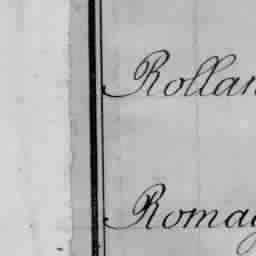 Rollan
Romag